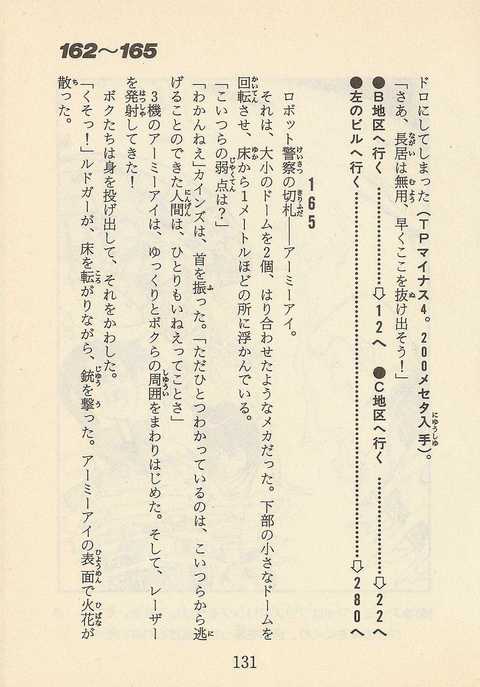 162〜165
ドロにしてしまった(TPマイナス4。200メセタ入手)。
「さあ、長居は無用、早くここを抜け出そう!」
●B地区へ行く…………⇨12へ ●C地区へ行く…………⇨22へ
●左のビルへ行く…………………………………⇨280へ
165
ロボット警察の切札――アーミーアイ。
それは、大小のドームを2個、はり合わせたようなメカだった。下部の小さなドームを
回転させ、床から1メートルほどの所に浮かんでいる。
「こいつらの弱点は?」
「わかんねえ」カインズは、首を振った。「ただひとつわかっているのは、こいつらから逃
げることのできた人間は、ひとりもいねえってことさ」
3機のアーミーアイは、ゆっくりとボクらの周囲をまわりはじめた。そして、レーザー
を発射してきた!
ボクたちは身を投げ出して、それをかわした。
「くそっ!」ルドガーが、床を転がりながら、銃を撃った。アーミーアイの表面で火花が
散った。
131